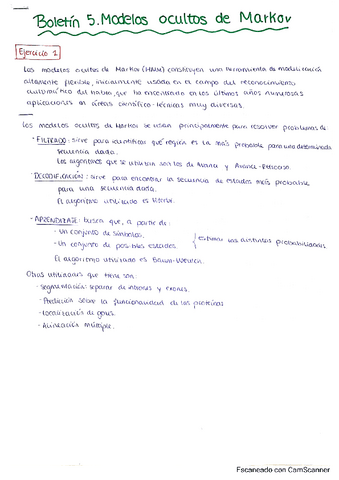 Boletín 5. Modelos ocultos de Markov
Ejercicio 1
Los modelos ocultos de Markov (HMM) constituyen una herramienta de modelización
altamente flexible, inicialmente usada en el campo del reconocimiento
automático del habla, que ha encontrado en los últimos años numerosas
aplicaciones en áreas científico-técnicas muy diversas.
Los modelos ocultos de Markov se usan principalmente para resolver problemas de:
· FILTRADO: sirve para identificar que región es la más probable para una determinada
secuencia dada.
Los algoritmos que se utilizan son los de Avance y Avance-Retroceso.
· DECODIFICACIÓN: sirve para encontrar la secuencia de estados más probable
para una secuencia dada.
El algoritmo utilizado es Viterbi.
· APRENDIZAJE: busca que, a partir de:
· Un conjunto de símbolos.
· Un conjunto de posibles estados.
estimar las distintas probabilidades
El algoritmo utilizado es Baum-Welch.
Otras utilidades que tiene son:
· Segmentación: separar de intrones y exones.
· Predicción sobre la funcionalidad de las proteínas
· Localización de genes.
· Alineación múltiple.
Escaneado con CamScanner